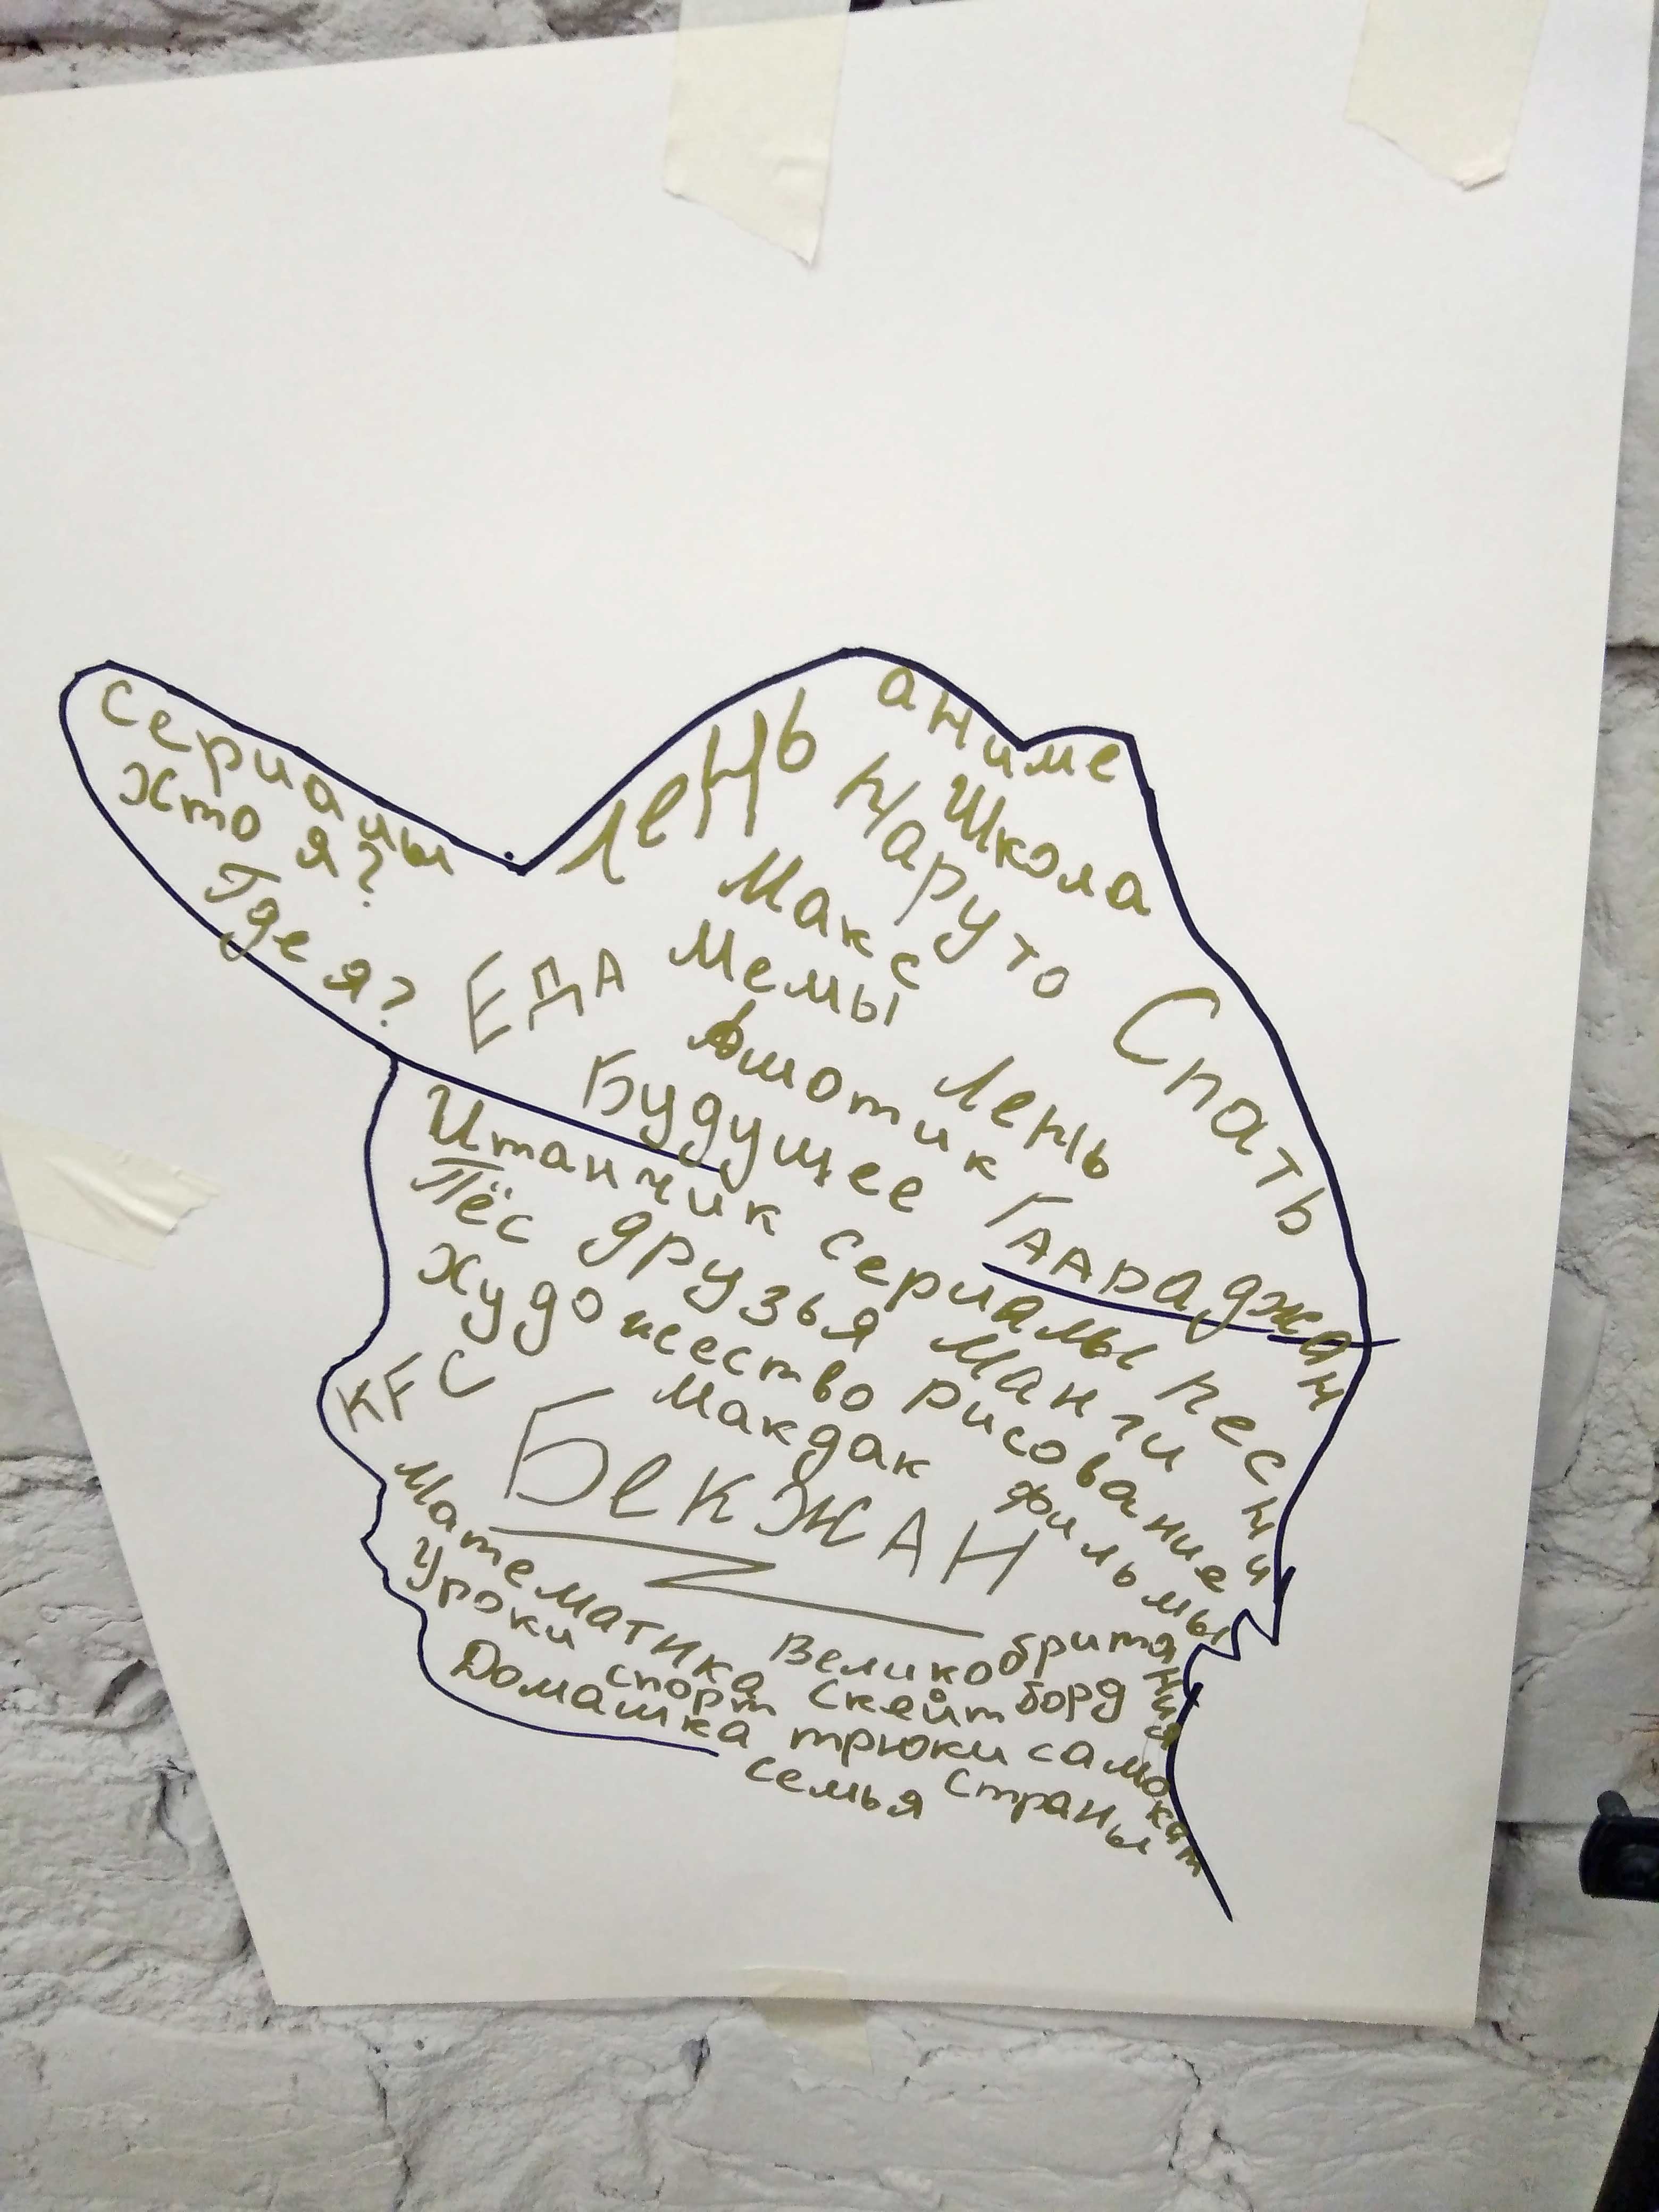 аниме
Школа
лень Наруто
Сериалы
Хто я?
Где я?
Макс
Мемы
Спать
ЕДА
Ашотик
лень
Будущее
Итанчик сериалы песни
Пёс друзья Манги
Художество рисование
KFC
Макдак фильмы
БекЖАН
Математика Великобритания
Уроки спорт Скейтборд
Домашка трюки самокат
семья Страны